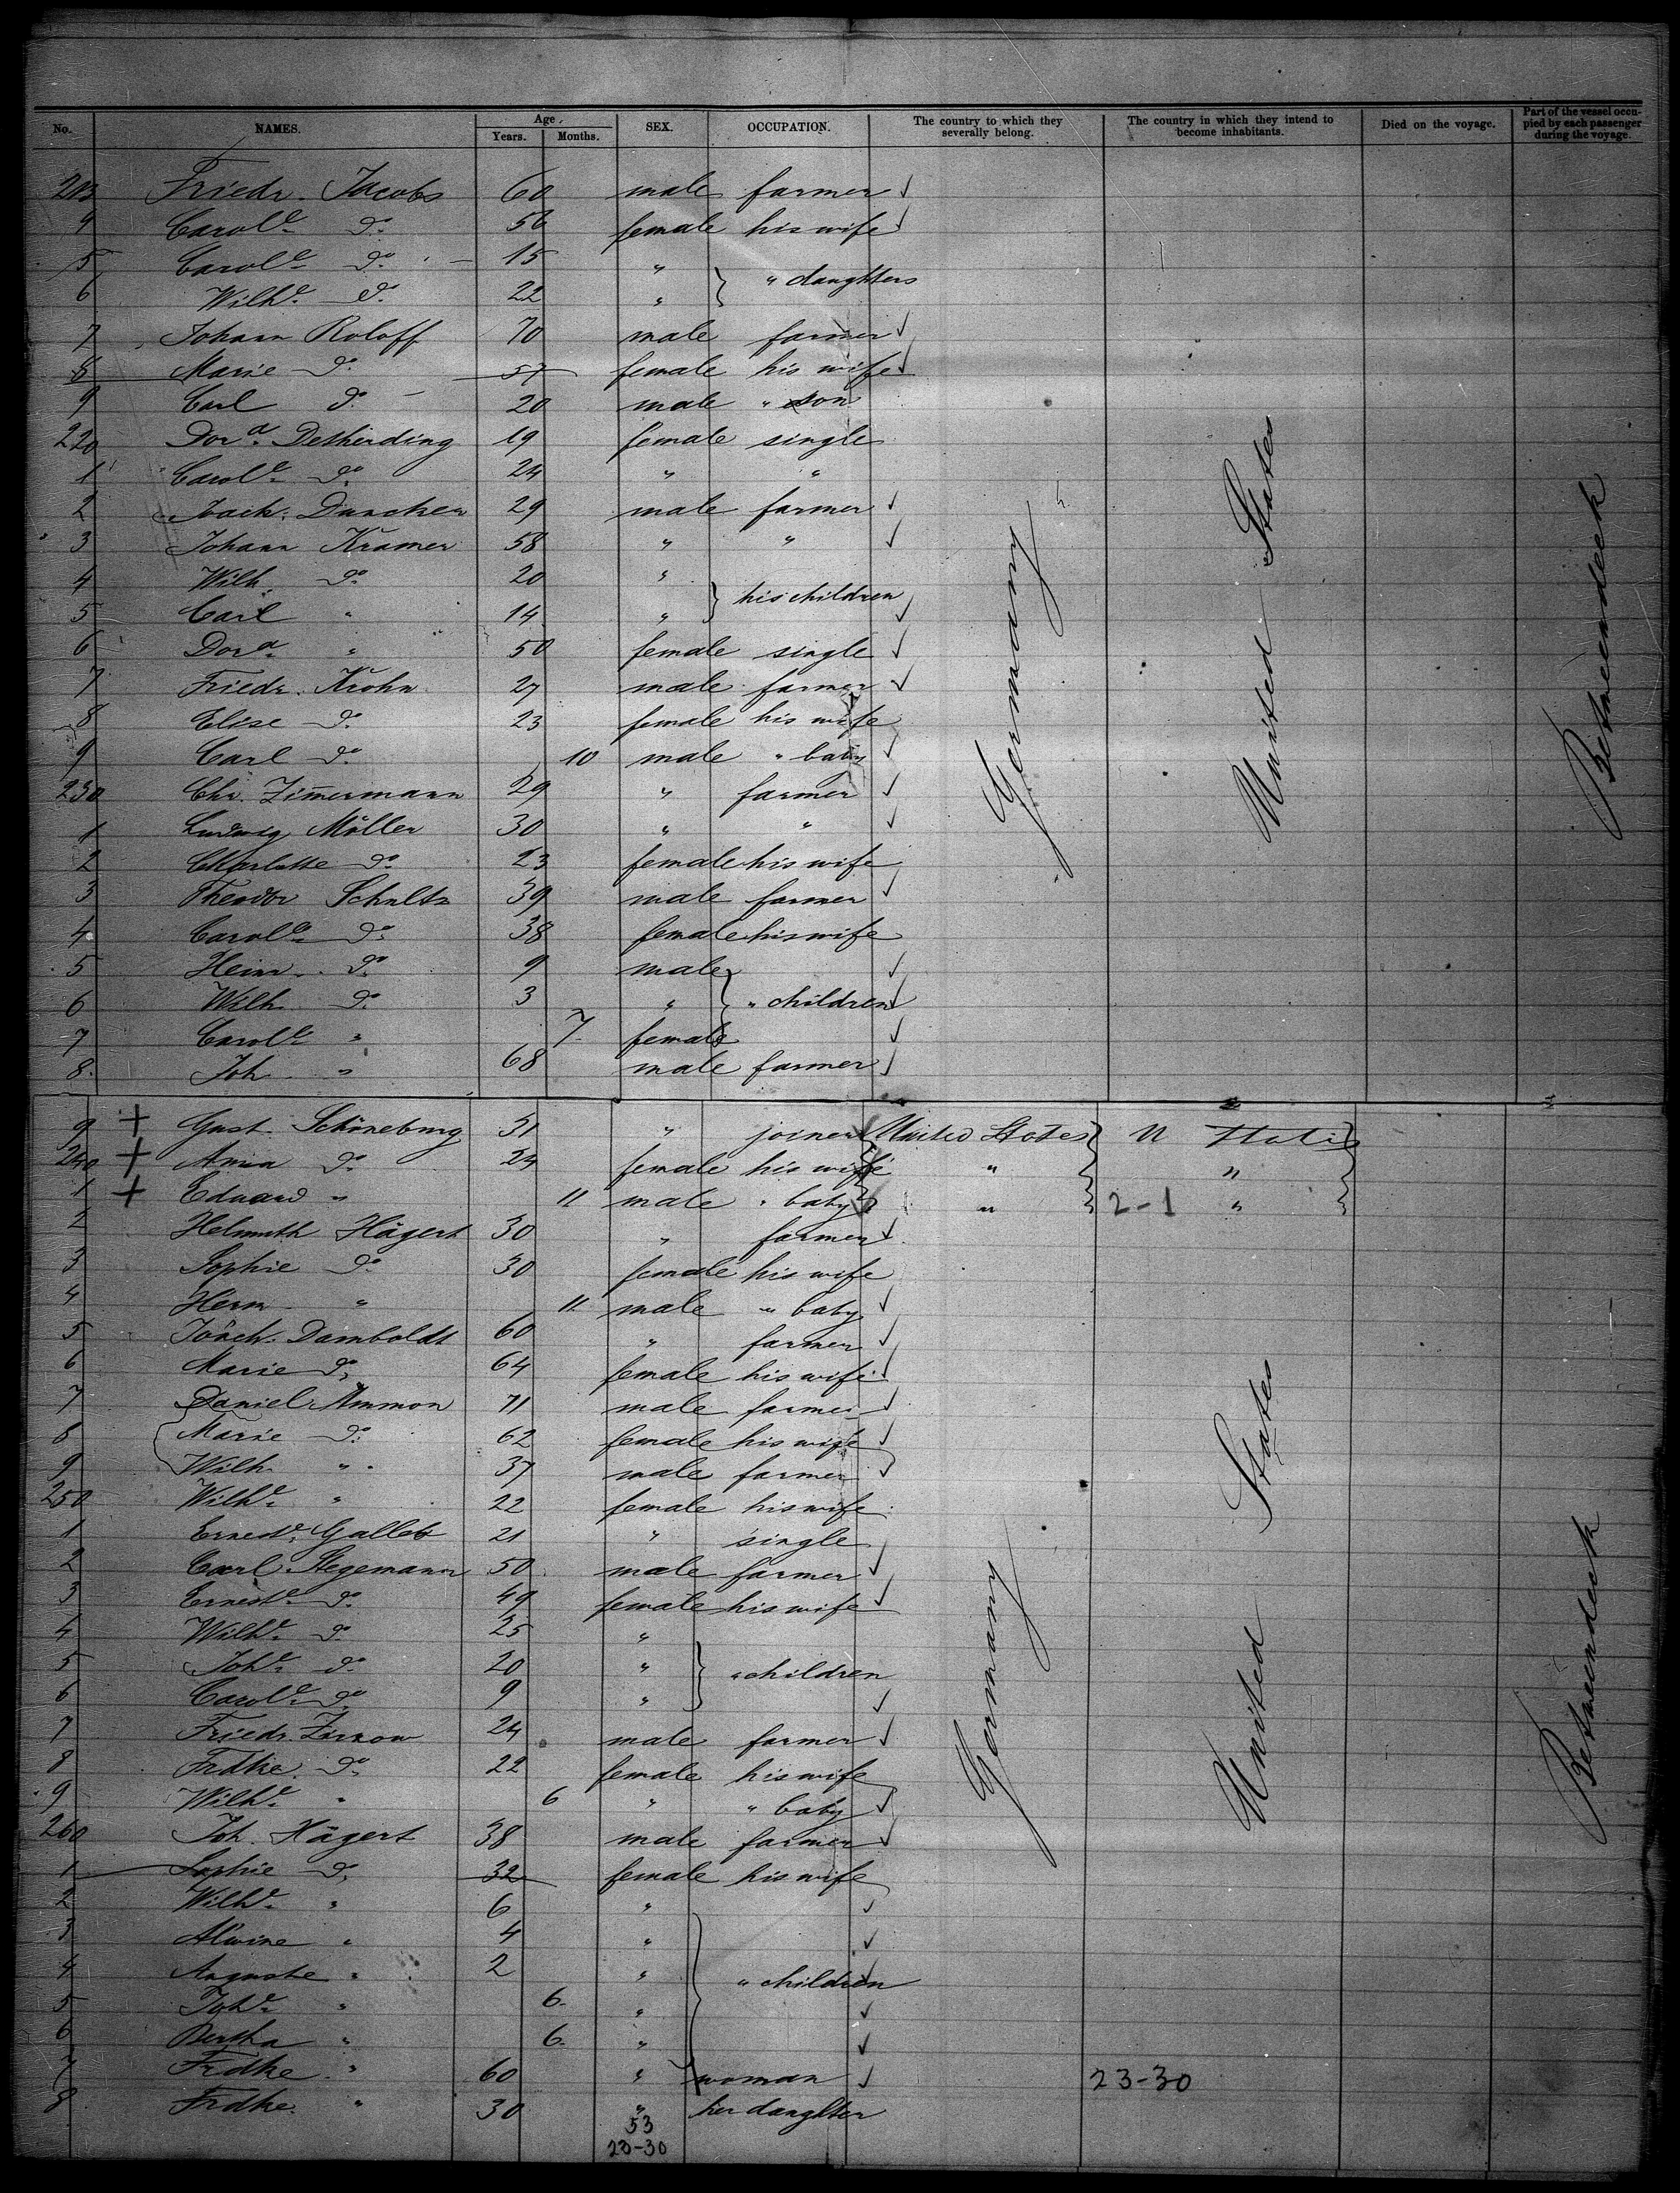 No. NAMES. Age. Years. Months. SEX. OCCUPATION. The country to which they severally belong. The country in which they intend to become inhabitants. Died on the voyage. Part of the vessel occupied by each passenger during the voyage.
213 Friedr. Jacobs 60 male farmer ✓
4 Carol.e do. 56 female his wife ✓
5 Carol.e do. 15 "
" daughters
6 Wilh.e do. 22 "
7 Johann Roloff 70 male farmer ✓
8 Marie do. 57 female his wife ✓
9 Carl do. 20 male " son
220 Dor.a Detherding 19 female single
1 Carol.e do. 24 " "
2 Joach. Duncker 29 male farmer ✓
3 Johann Kramer 58 " " ✓
4 Wilh. do. 20 "
his children
5 Carl " 14 " ✓
6 Dor.a " 50 female single ✓
7 Friedr. Krohn 27 male farmer ✓
8 Elise do. 23 female his wife
9 Carl do. 10 male " baby ✓
230 Chr. Zimmermann 29 " farmer ✓
1 Ludwig Möller 30 " " ✓
2 Charlotte do. 23 female his wife
3 Theodor Schultz 39 male farmer ✓
4 Carol.e do. 38 female his wife
5 Heinr. do. 9 male ✓
6 Wilh. do. 3 " " children ✓
7 Carol.e " 7 female ✓
8 Joh. " 68 male farmer ✓
Germany
United States
Betweendeck
9 + Gust. Schöneburg 31 " joiner United States U States
240 + Anna do. 24 female his wife " "
1 + Eduard " 11 male " baby " 2-1 "
2 Helmuth Hägert 30 " farmer ✓
3 Sophie do. 30 female his wife
4 Herm. " 11 male " baby ✓
5 Joach. Damboldt 60 " farmer ✓
6 Marie do. 64 female his wife ✓
7 Daniel Ammon 71 male farmer ✓
8 Marie do. 62 female his wife ✓
9 Wilh. " 37 male farmer ✓
250 Wilh.e " 22 female his wife
1 Ernest.e 21 " single
2 Carl Stegemann 50 male farmer ✓
3 Ernest.e do. 49 female his wife ✓
4 Wilh.e do. 25 "
5 Joh.e do. 20 " " children
6 Carol.e do. 9 " ✓
7 Friedr. 24 male farmer ✓
8 Frdke. do. 22 female his wife
9 Wilh.e " 6 " " baby ✓
260 Joh. Hägert 38 male farmer ✓
1 Sophie do. 32 female his wife
2 Wilh.e " 6 " ✓
3 Alwine " 4 " ✓
4 Auguste " 2 " " children
5 Joh.e " 6 " ✓
6 Bertha " 6 " ✓
7 Frdke. " 60 " woman ✓ 23-30
8 Frdke. " 30 " her daughter
53
23-30
Germany
United States
Betweendeck